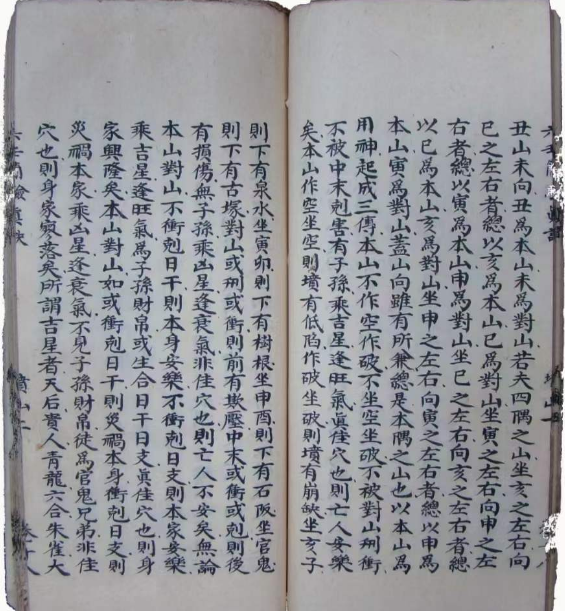 丑山未向丑爲本山未爲對山若夫四隅之山坐亥之左右向
巳之左右者總以亥爲本山巳爲對山坐寅之左右向申之左
右者總以寅爲本山申爲對山坐巳之左右向亥之左右者總
以巳爲本山亥爲對山坐申之左右向寅之左右者總以申爲
本山寅爲對山蓋山向雖有所兼總是本隅之山也以本山爲
用神起成三傳本山不作空作破不坐空坐破不被對山刑衝
不被中末剋害有子孫乘吉星逢旺氣眞佳穴也則亡人安樂
矣本山作空坐空則墳有低陷作破坐破則墳有崩缺坐亥子
則下有泉水坐寅卯則下有樹根坐申酉則下有石阪坐官鬼
則下有古塚對山或刑或衝則前有欺壓中末或衝或剋則後
有損傷無子孫乘凶星逢衰氣非佳穴也則亡人不安矣無論
本山對山不衝剋日干則本身安樂不衝剋日支則本家安樂
乘吉星逢旺氣爲子孫財帛或生合日干日支眞佳穴也則身
家興隆矣本山對山如或衝剋日干則災禍本身衝剋日支則
災禍本家乘凶星逢衰氣不見子孫財帛徒爲官鬼兄弟非佳
穴也則身家衰落矣所謂吉星者天后貴人青龍六合朱雀大